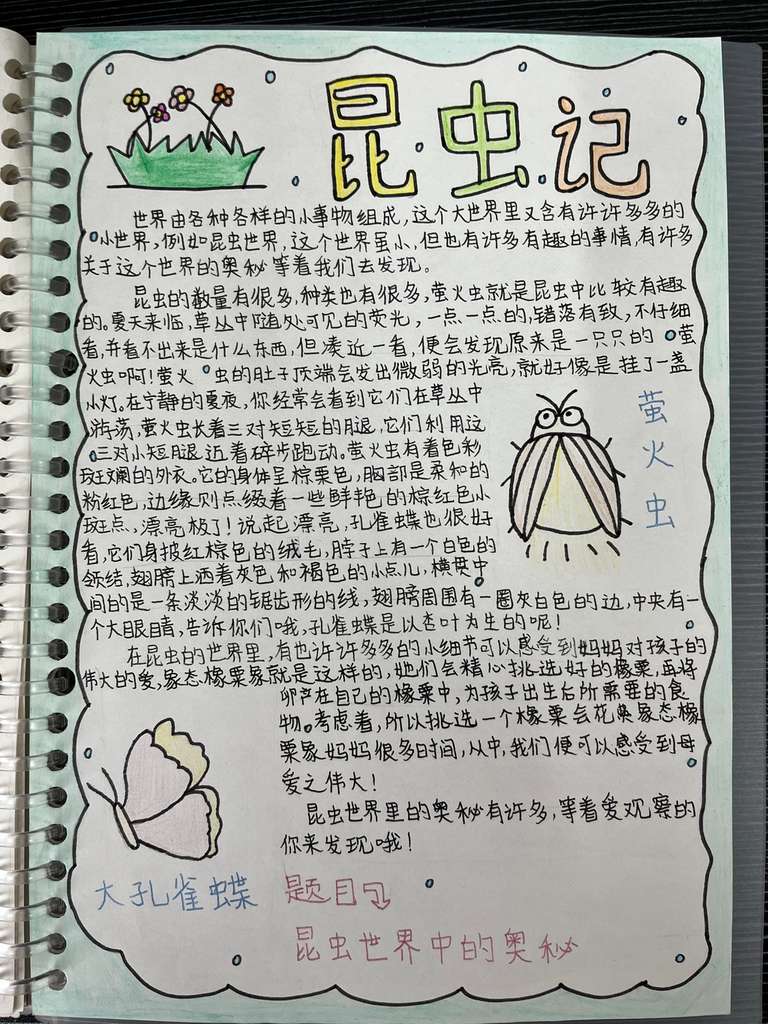 昆虫记
世界由各种各样的小事物组成,这个大世界里又含有许许多多的
小世界,例如昆虫世界,这个世界虽小,但也有许多有趣的事情,有许多
关于这个世界的奥秘等着我们去发现。
昆虫的数量有很多,种类也有很多,萤火虫就是昆虫中比较有趣
的。夏天来临,草丛中随处可见的荧光,一点一点的,错落有致,不仔细
看,并看不出来是什么东西,但凑近一看,便会发现原来是一只只的萤
火虫啊!萤火虫的肚子顶端会发出微弱的光亮,就好像是挂了一盏
小灯。在宁静的夏夜,你经常会看到它们在草丛中
游荡,萤火虫长着三对短短的腿,它们利用这
三对小短腿迈着碎步跑动。萤火虫有着色彩
斑斓的外衣。它的身体呈棕栗色,胸部是柔和的
粉红色,边缘则点缀着一些鲜艳的棕红色小
斑点,漂亮极了!说起漂亮,孔雀蝶也很好
看,它们身披红棕色的绒毛,脖子上有一个白色的
领结,翅膀上洒着灰色和褐色的小点儿,横贯中
间的是一条淡淡的锯齿形的线,翅膀周围有一圈灰白色的边,中央有一
个大眼睛,告诉你们哦,孔雀蝶是以杏叶为生的呢!
在昆虫的世界里,有也许许多多的小细节可以感受到妈妈对孩子的
伟大的爱,象态橡栗象就是这样的,她们会精心挑选好的橡栗,再将
卵产在自己的橡栗中,为孩子出生后所需要的食
物。考虑着,所以挑选一个橡栗会花费象态橡
栗象妈妈很多时间,从中,我们便可以感受到母
爱之伟大!
昆虫世界里的奥秘有许多,等着爱观察的
你来发现哦!
萤火虫
大孔雀蝶
题目
昆虫世界中的奥秘